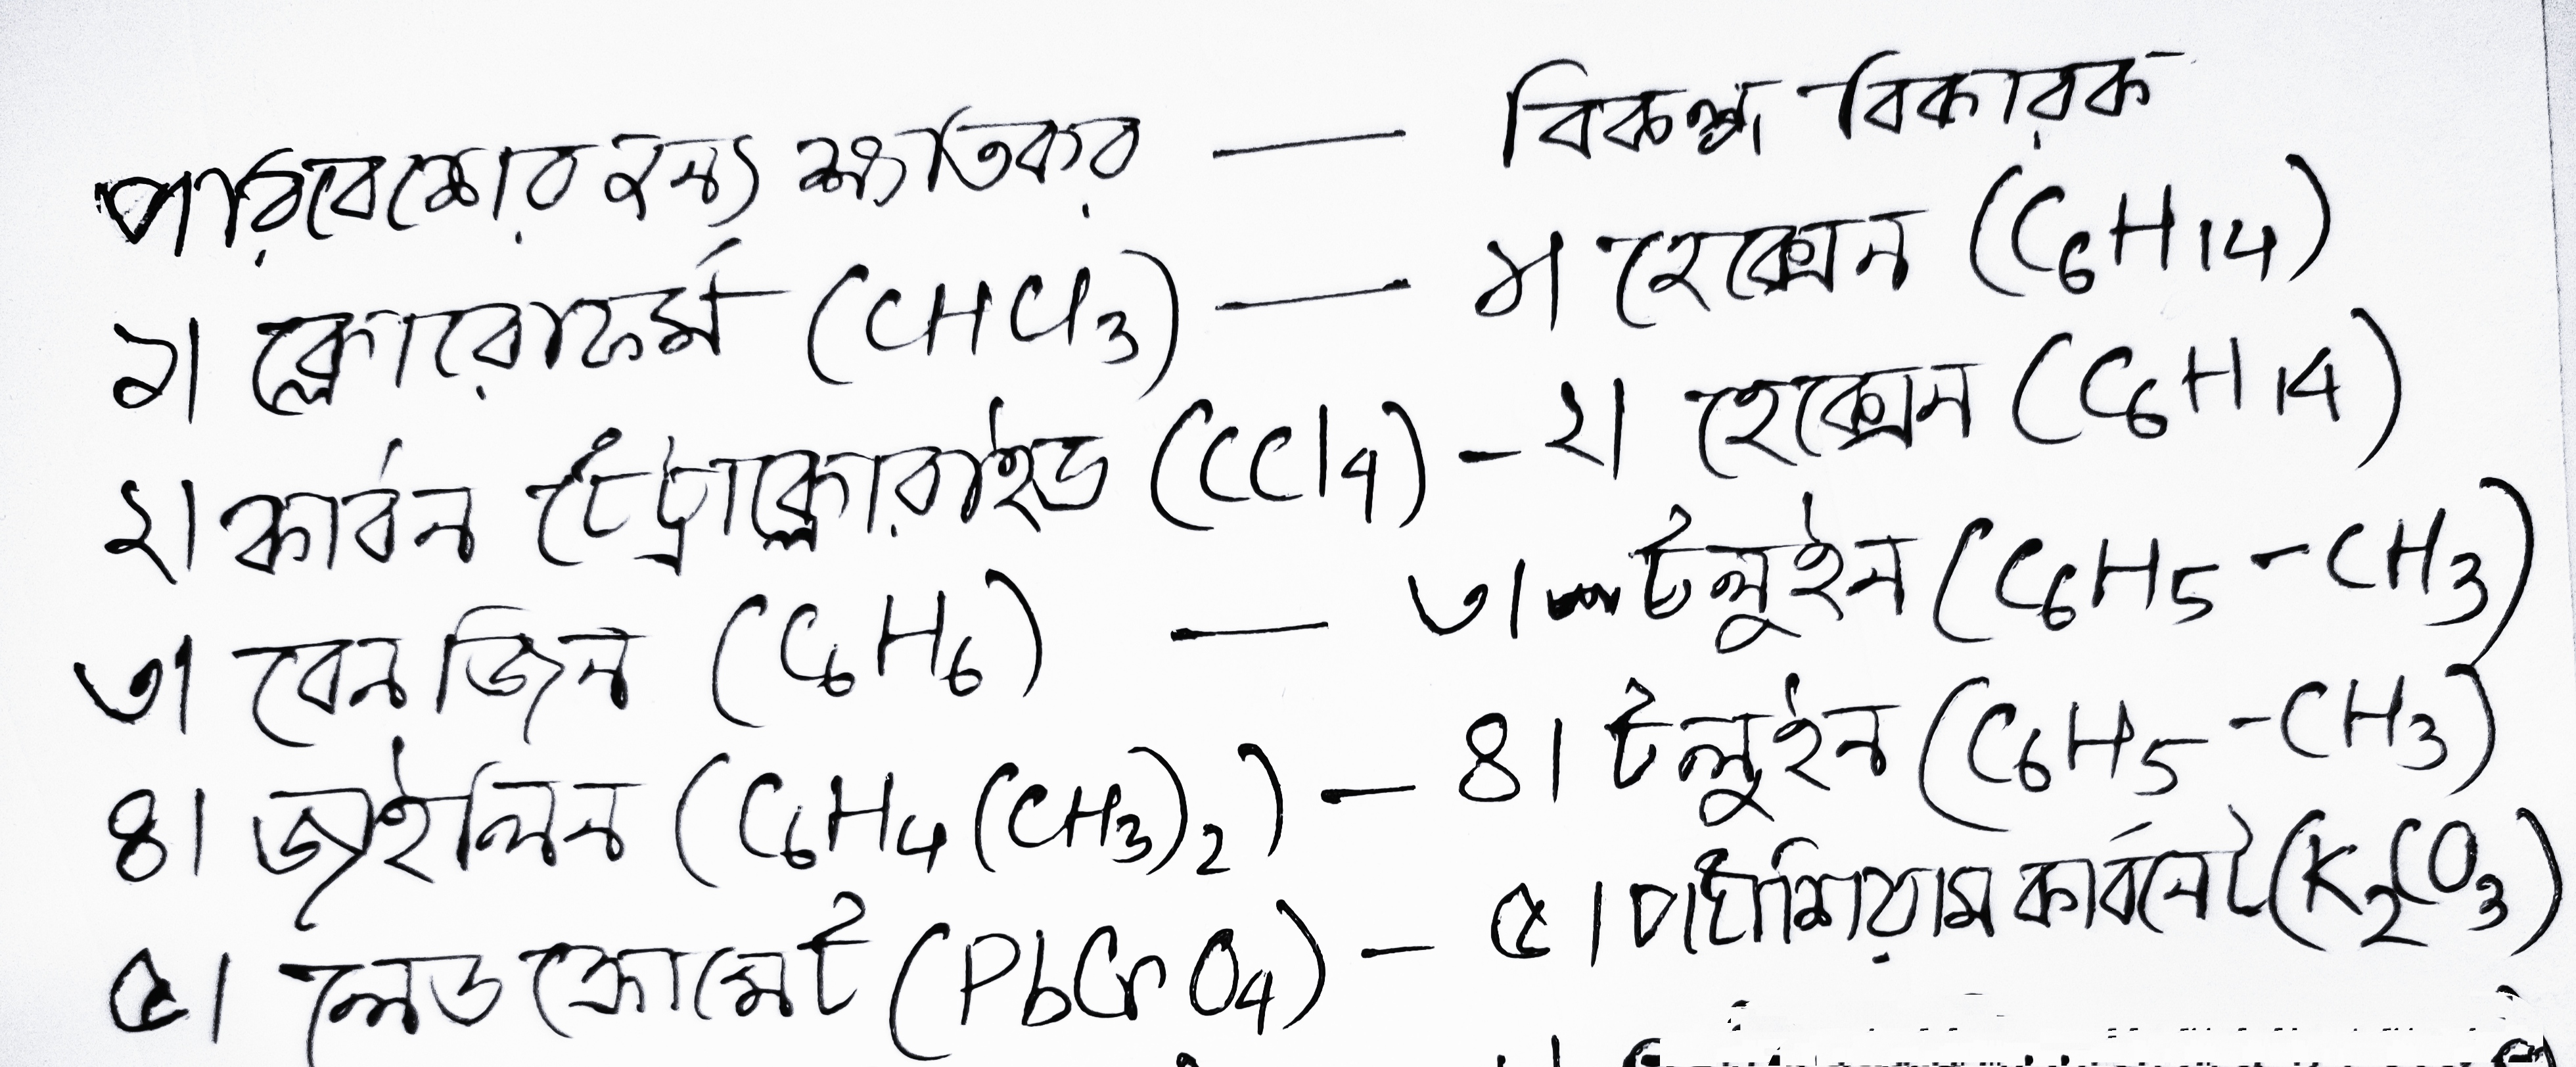 পরিবেশের জন্য ক্ষতিকর — বিকল্প বিকারক
১। ক্লোরোফর্ম (CHCl3) — ১। হেক্সেন (C6H14)
২। কার্বন টেট্রাক্লোরাইড (CCl4) - ২। হেক্সেন (C6H14)
৩। বেনজিন (C6H6) — ৩। টলুইন (C6H5-CH3)
৪। জাইলিন (C6H4(CH3)2) - ৪। টলুইন (C6H5-CH3)
৫। লেড ক্রোমেট (PbCrO4) - ৫। পটাশিয়াম কার্বনেট (K2CO3)